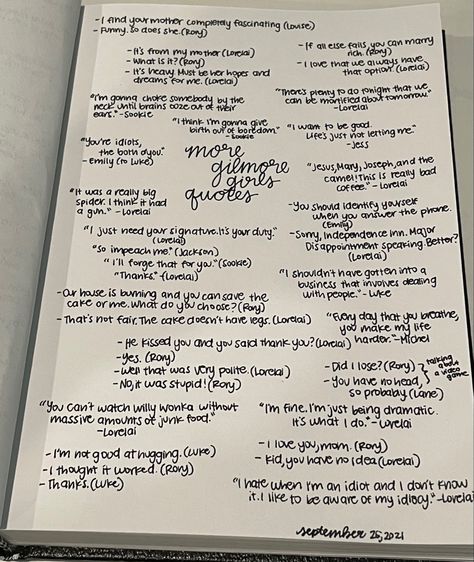 - I find your mother completely fascinating (Louise)
- Funny. So does she. (Rory)
- It's from my mother (Lorelai)
- What is it? (Rory)
- It's heavy. Must be her hopes and
dreams for me. (Lorelai)
- If all else fails, you can marry
rich. (Rory)
- I love that we always have
that option. (Lorelai)
"I'm gonna choke somebody by the
neck until brains ooze out of their
ears." - Sookie
"There's plenty to do tonight that we
can be mortified about tomorrow."
- Lorelai
"I think I'm gonna give
birth out of boredom."
- Sookie
"I want to be good.
Life's just not letting me."
- Jess
"You're idiots,
the both of you."
- Emily (to Luke)
more
gilmore
girls
quotes
"Jesus, Mary, Joseph, and the
camel! This is really bad
coffee." - Lorelai
"It was a really big
spider. I think it had
a gun." - Lorelai
- You should identify yourself
when you answer the phone.
(Emily)
- Sorry, Independence Inn. Major
Disappointment speaking. Better?
(Lorelai)
"I just need your signature. It's your duty."
(Lorelai)
"So impeach me." (Jackson)
"I'll forge that for you." (Sookie)
"Thanks." (Lorelai)
"I shouldn't have gotten into a
business that involves dealing
with people." - Luke
- Our house is burning and you can save the
cake or me. What do you choose? (Rory)
- That's not fair. The cake doesn't have legs. (Lorelai)
"Every day that you breathe,
you make my life
harder." - Michel
- He kissed you and you said thank you? (Lorelai)
- Yes. (Rory)
- Well that was very polite. (Lorelai)
- No, it was stupid! (Rory)
- Did I lose? (Rory)
- You have no head,
so probably. (Lane)
talking
about
a video
game
"You can't watch Willy Wonka without
massive amounts of junk food."
- Lorelai
"I'm fine. I'm just being dramatic.
It's what I do." - Lorelai
- I'm not good at hugging. (Luke)
- I thought it worked. (Rory)
- Thanks. (Luke)
- I love you, mom. (Rory)
- Kid, you have no idea (Lorelai)
"I hate when I'm an idiot and I don't know
it. I like to be aware of my idiocy." - Lorelai
september 26, 2021